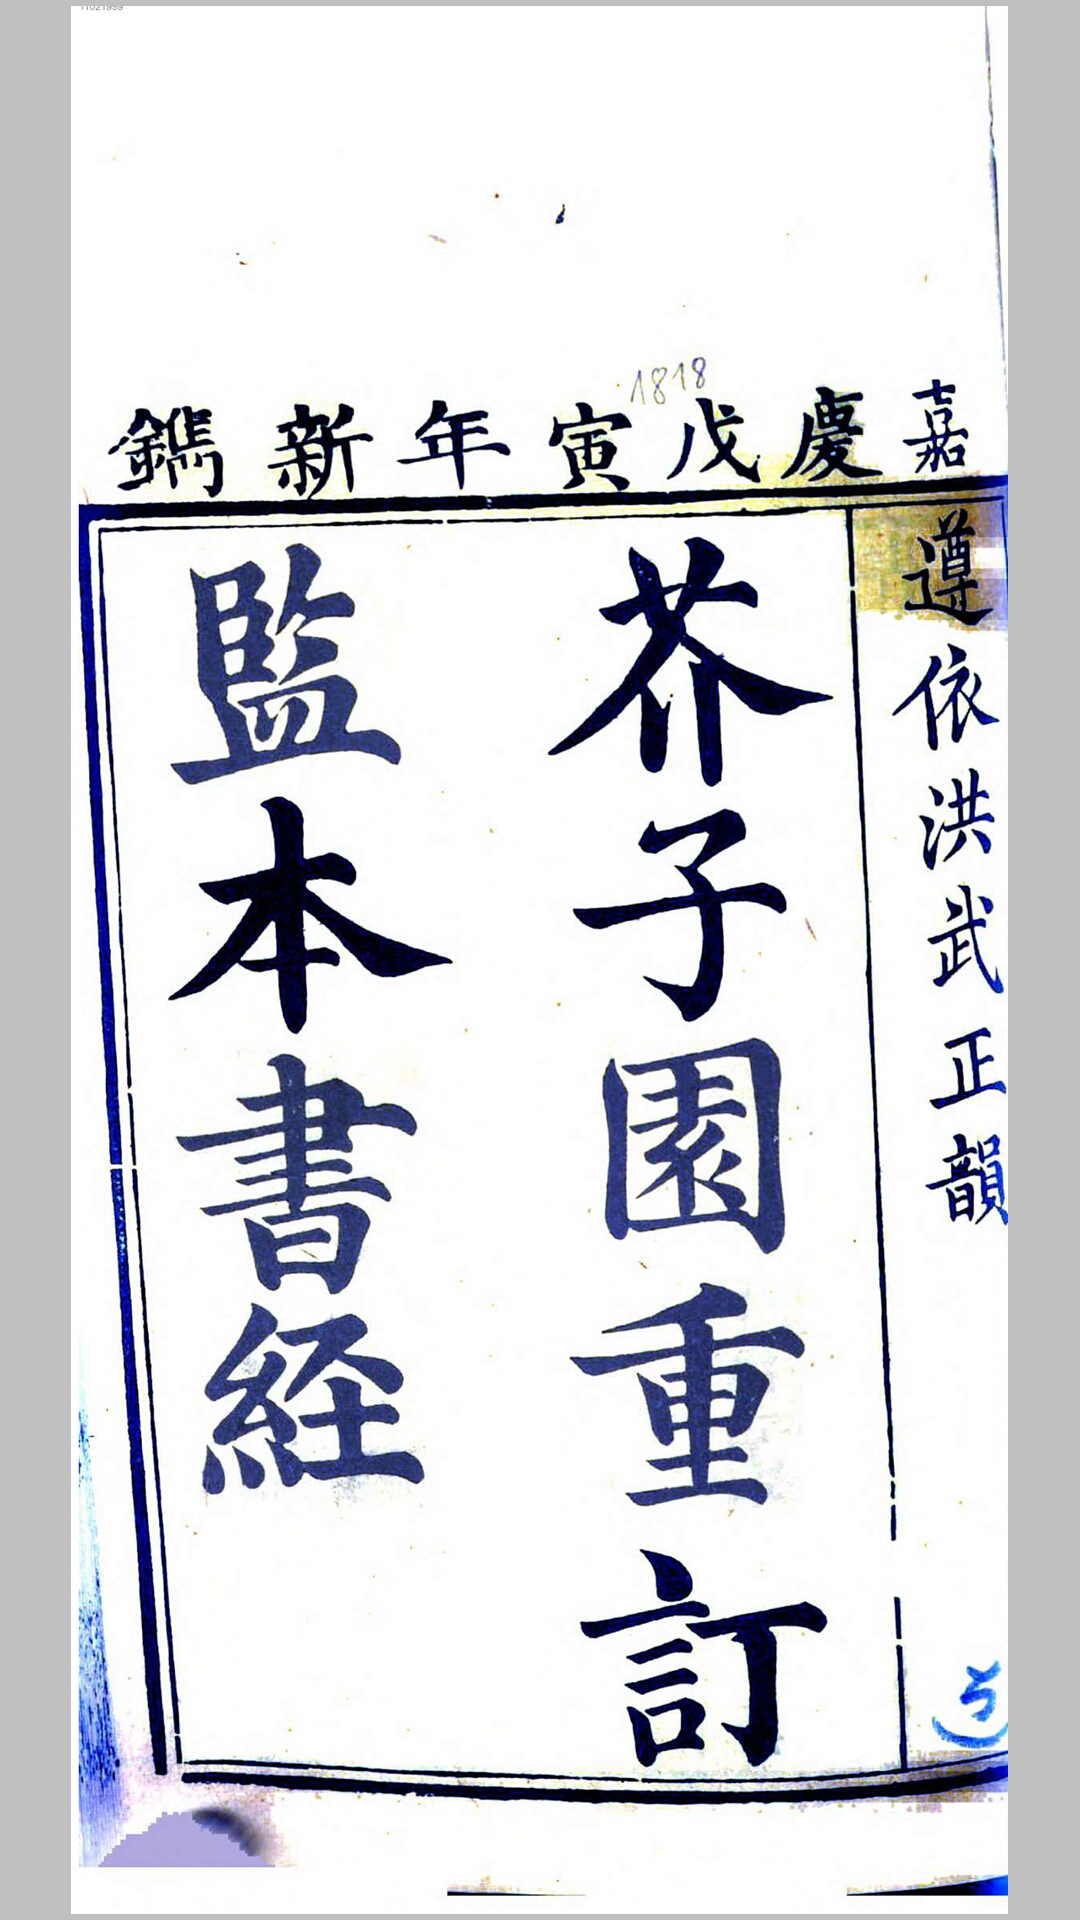 1818
嘉慶戊寅年新鐫
遵依洪武正韻
芥子園重訂
監本書経